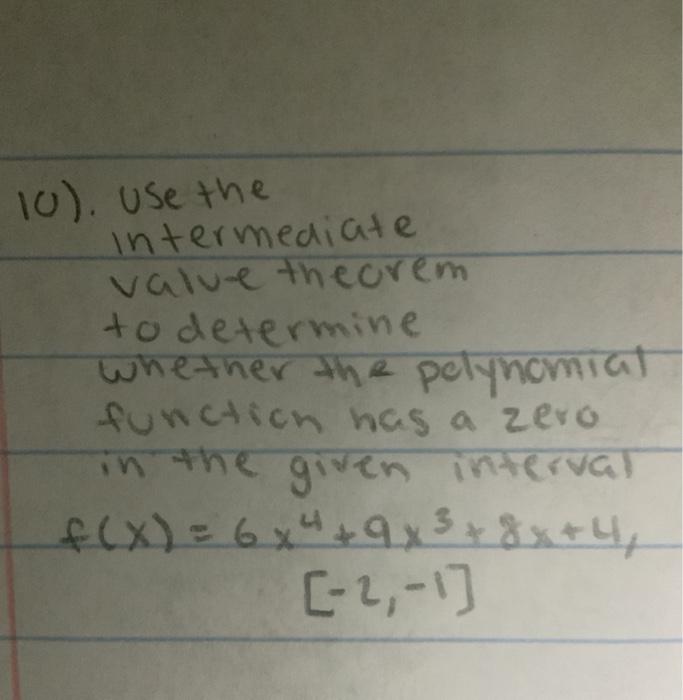 10). Use the
intermediate
value theorem
to determine
whether the polynomial
function has a zero
in the given interval
f(x) = 6x⁴+9x³+8x+4,
[-2,-1]